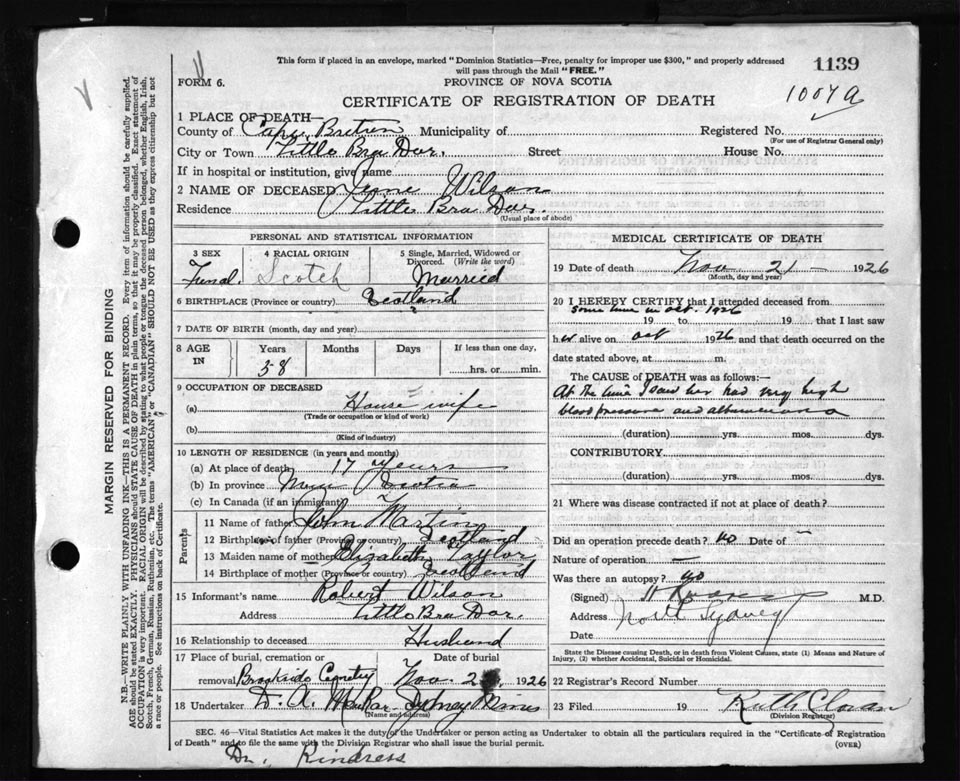 This form if placed in an envelope, marked "Dominion Statistics—Free, penalty for improper use $300," and properly addressed
will pass through the Mail "FREE."
1139
FORM 6.
PROVINCE OF NOVA SCOTIA
CERTIFICATE OF REGISTRATION OF DEATH
1007A
1 PLACE OF DEATH
County of Cape Breton Municipality of Registered No.
(For use of Registrar General only)
City or Town Little Bra Dor. Street House No.
If in hospital or institution, give name
2 NAME OF DECEASED Jane Wilson
Residence Little Bra Dor.
(Usual place of abode)
PERSONAL AND STATISTICAL INFORMATION
3 SEX 4 RACIAL ORIGIN 5 Single, Married, Widowed or Divorced. (Write the word)
Femal. Scotch Married
6 BIRTHPLACE (Province or country) Scotland
7 DATE OF BIRTH (month, day and year)
8 AGE IN Years Months Days If less than one day,
58 hrs. or min.
9 OCCUPATION OF DECEASED
(a) House wife
(Trade or occupation or kind of work)
(b)
(Kind of industry)
10 LENGTH OF RESIDENCE (in years and months)
(a) At place of death 17 years
(b) In province Nova Scotia
(c) In Canada (if an immigrant)
Parents
11 Name of father John Martin
12 Birthplace of father (Province or country) Scotland
13 Maiden name of mother Elizabeth Taylor
14 Birthplace of mother (Province or country) Scotland
15 Informant's name Robert Wilson
Address Little Bra Dor.
16 Relationship to deceased Husband
17 Place of burial, cremation or removal Date of burial
Cemetry Nov 1926
18 Undertaker D. A. Sydney Mines
(Name and address)
MEDICAL CERTIFICATE OF DEATH
19 Date of death Nov 21 1926
(Month, day and year)
20 I HEREBY CERTIFY that I attended deceased from
some time in Oct. 1926
19 to 19 that I last saw
her alive on Oct 1926 and that death occurred on the
date stated above, at m.
The CAUSE of DEATH was as follows:—
At the time I saw her had very high
blood pressure and
(duration) yrs. mos. dys.
CONTRIBUTORY.
(duration) yrs. mos. dys.
21 Where was disease contracted if not at place of death?
Did an operation precede death? no Date of —
Nature of operation —
Was there an autopsy? no
(Signed) M.D.
Address North Sydney
Date
State the Disease causing Death, or in death from Violent Causes, state (1) Means and Nature of
Injury, (2) whether Accidental, Suicidal or Homicidal.
22 Registrar's Record Number
23 Filed 19 Ruth
(Division Registrar)
SEC. 46—Vital Statistics Act makes it the duty of the Undertaker or person acting as Undertaker to obtain all the particulars required in the "Certificate of Registration
of Death" and to file the same with the Division Registrar who shall issue the burial permit.
(OVER)
Dr. Kindress
MARGIN RESERVED FOR BINDING
N.B.—WRITE PLAINLY WITH UNFADING INK—THIS IS A PERMANENT RECORD. Every item of information should be carefully supplied.
AGE should be stated EXACTLY. PHYSICIANS should STATE CAUSE OF DEATH in plain terms, so that it may be properly classified. Exact statement of
OCCUPATION is very important. RACIAL ORIGIN will be described by stating to what people or tongue the deceased person belonged, whether English, Irish
Scotch, French, German, Russian, Ruthenian, etc. The terms "AMERICAN" or "CANADIAN" SHOULD NOT BE USED as they express citizenship but not
a race or people. See instructions on back of Certificate.